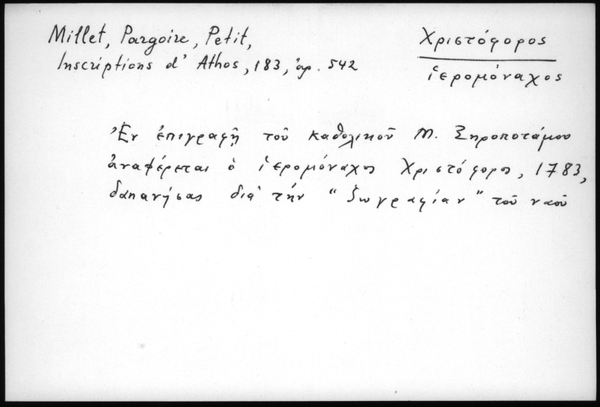 Millet, Pargoire, Petit,
Inscriptions d' Athos, 183, ἀρ. 542
Χριστόφορος
ἱερομόναχος
Ἐν ἐπιγραφῇ τοῦ καθολικοῦ Μ. Ξηροποτάμου
ἀναφέρεται ὁ ἱερομόναχος Χριστόφορος, 1783,
δαπανήσας διὰ τὴν "ζωγραφίαν" τοῦ ναοῦ